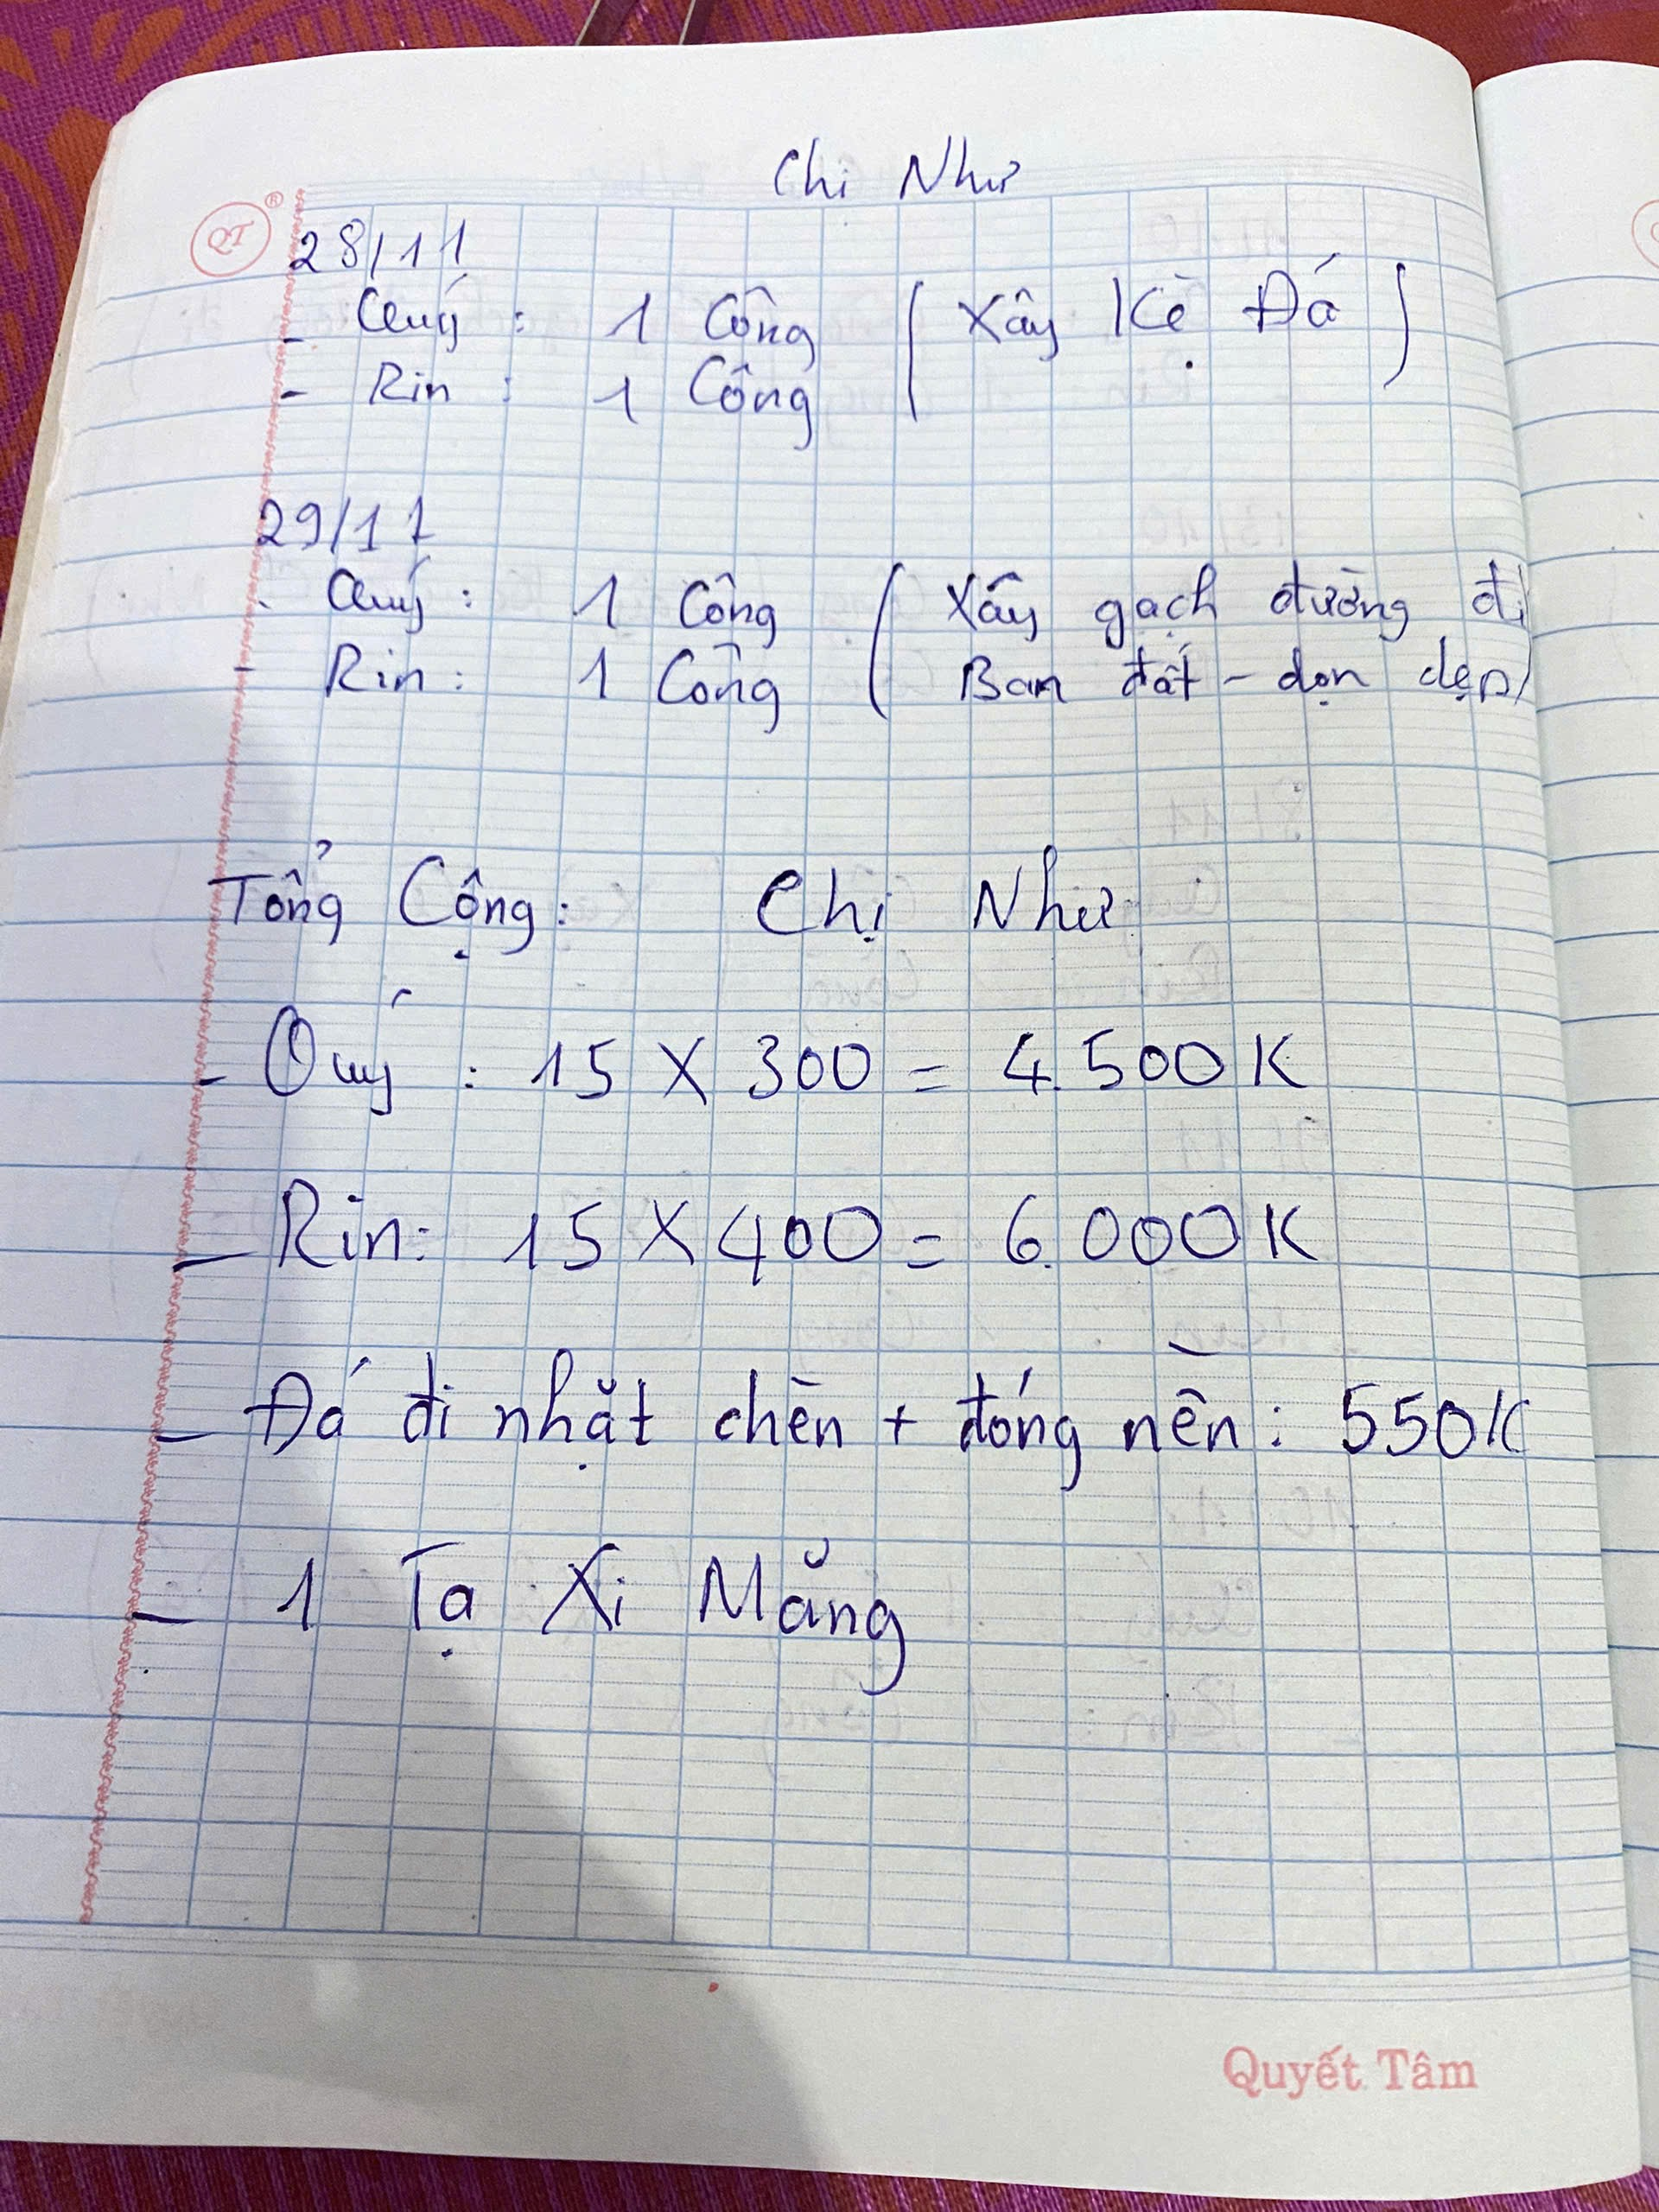 Chị Như
QT ®
28/11
- Quý : 1 Công ( Xây Kè Đá )
- Rin : 1 Công
29/11
- Quý : 1 Công ( Xây gạch đường đi
- Rin : 1 Công Ban đất - dọn dẹp)
Tổng Cộng : Chị Như
- Quý : 15 X 300 = 4.500K
- Rin : 15 X 400 = 6.000K
- Đá đi nhặt chèn + đóng nền : 550K
- 1 Tạ Xi Măng
Quyết Tâm